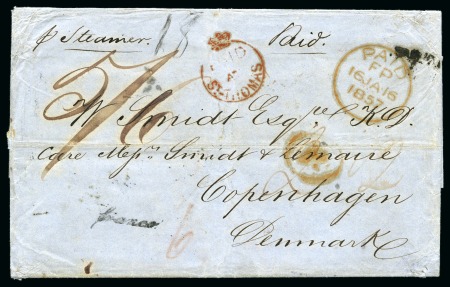 p Steamer. Paid.
PAID
ST THOMAS
PAID
FP
16JA16
185
W. Smidt Esqre K.D.
Care Messrs Smidt & Lemaire
Copenhagen
Denmark
franco
6